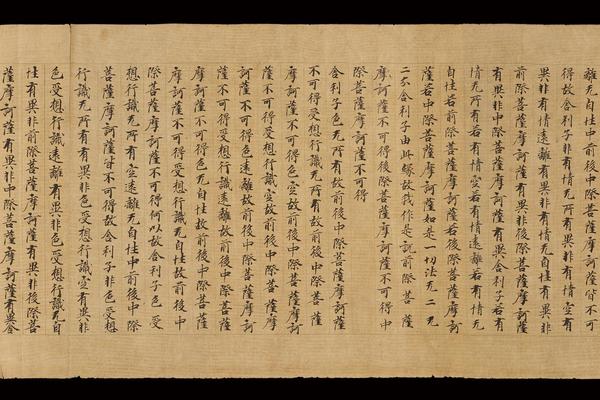 離无自性中前後中際菩薩摩訶薩皆不可
得故舍利子非有情无所有有異非有情空有
異非有情遠離有異非有情无自性有異非
前際菩薩摩訶薩有異非後際菩薩摩訶薩
有異非中際菩薩摩訶薩有異舍利子若有
情无所有若有情空若有情遠離若有情无
自性若前際菩薩摩訶薩若後際菩薩摩訶
薩若中際菩薩摩訶薩如是一切法无二无
二分舍利子由此緣故我作是說前際菩薩
摩訶薩不可得後際菩薩摩訶薩不可得中
際菩薩摩訶薩不可得
舍利子色无所有故前後中際菩薩摩訶薩
不可得受想行識无所有故前後中際菩薩
摩訶薩不可得色空故前後中際菩薩摩訶
薩不可得受想行識空故前後中際菩薩摩
訶薩不可得色遠離故前後中際菩薩摩訶
薩不可得受想行識遠離故前後中際菩薩
摩訶薩不可得色无自性故前後中際菩薩
摩訶薩不可得受想行識无自性故前後中
際菩薩摩訶薩不可得何以故舍利子色受
想行識无所有空遠離无自性中前後中際
菩薩摩訶薩皆不可得故舍利子非色受想
行識无所有有異非色受想行識空有異非
色受想行識遠離有異非色受想行識无自
性有異非前際菩薩摩訶薩有異非後際菩
薩摩訶薩有異非中際菩薩摩訶薩有異舍